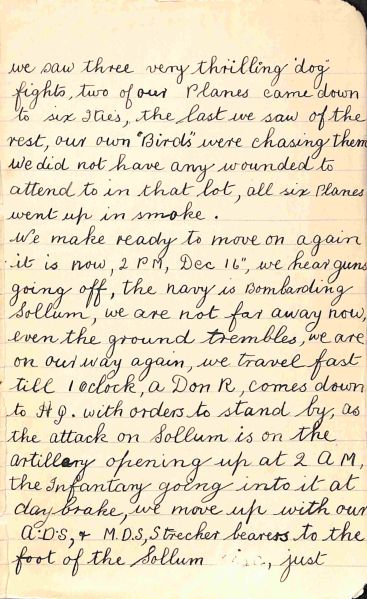 we saw three very thrilling "dog"
fights, two of our Planes came down
to six Ities, the last we saw of the
rest, our own "Birds" were chasing them
We did not have any wounded to
attend to in that lot, all six Planes
went up in smoke.
We make ready to move on again
it is now, 2 PM, Dec 16", we hear guns
going off, the navy is Bombarding
Sollum, we are not far away now,
even the ground trembles, we are
on our way again, we travel fast
till 1 Oclock, a Don R, comes down
to HQ. with orders to stand by, as
the attack on Sollum is on the
artillery opening up at 2 AM,
the Infantary going into it at
day brake, we move up with our
A.D.S, & M.D.S, Strecker bearers to the
foot of the Sollum , just